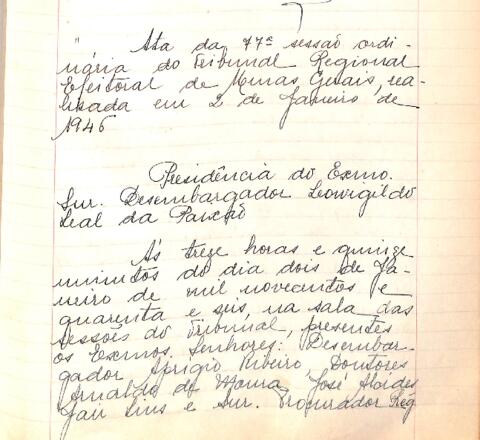 Ata da 77ª sessão ordi-
nária do Tribunal Regional
Eleitoral de Minas Gerais, rea-
lisada em 2 de Janeiro de
1946
Presidência do Exmo.
Snr. Desembargador Leovigildo
Leal da Paixão
Ás treze horas e quinze
minutos do dia dois de Ja-
neiro de mil novecentos e
quarenta e seis, na sala das
sessões do Tribunal, presentes
os Exmos. Senhores: Desembar-
gador Aprigio Ribeiro, Doutores
Arnaldo de Moura, José Alcides
Jair Lins e Snr. Procurador Reg